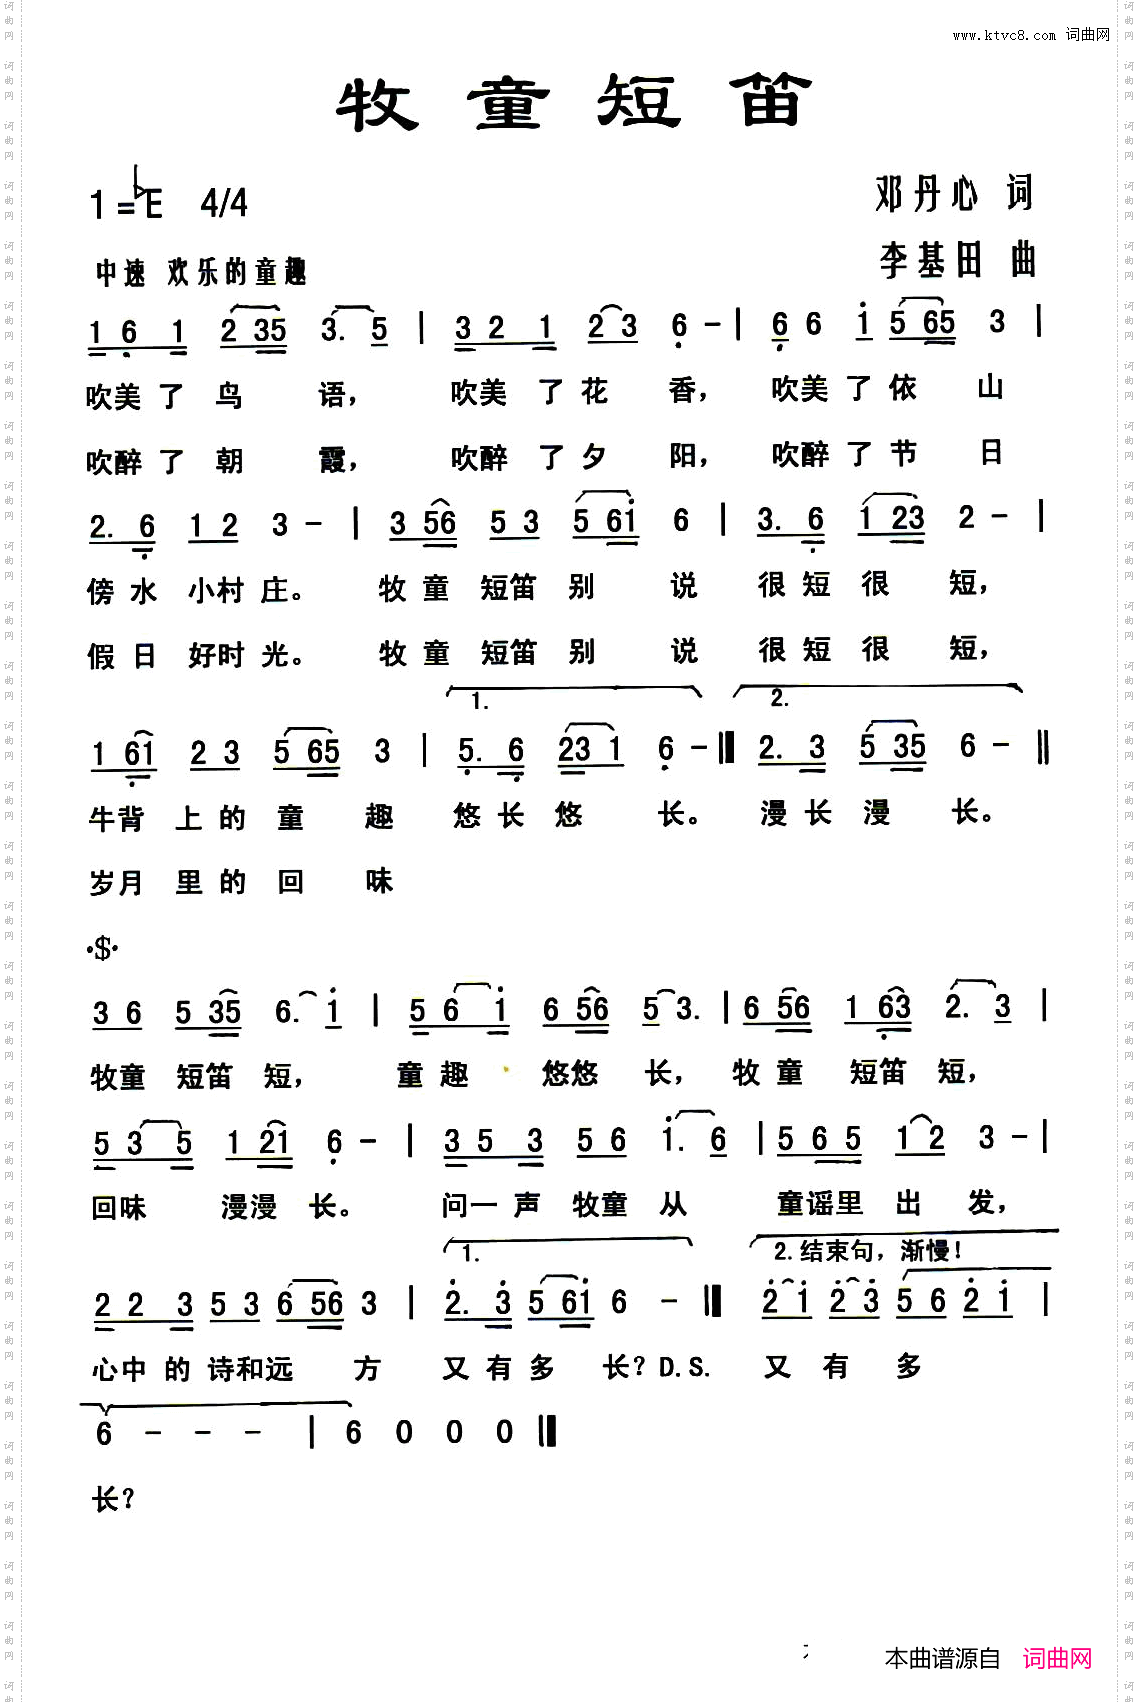 www.ktvc8.com 词曲网
牧童短笛
1=♭E 4/4
邓丹心 词
中速 欢乐的童趣
李基田 曲
1 6 1 2 35 3. 5 | 3 2 1 2 3 6 - | 6 6 i 5 65 3 |
吹美了鸟 语， 吹美了花 香， 吹美了依 山
吹醉了朝 霞， 吹醉了夕 阳， 吹醉了节 日
2. 6 1 2 3 - | 3 56 5 3 5 6i 6 | 3. 6 1 23 2 - |
傍水 小村庄。 牧童 短笛别 说 很短很 短，
假日 好时光。 牧童 短笛别 说 很短很 短，
1. 2.
1 61 2 3 5 65 3 | 5. 6 23 1 6 - :‖ 2. 3 5 35 6 - ‖
牛背 上的童 趣 悠长悠 长。 漫长漫 长。
岁月 里的回 味
·$·
3 6 5 35 6. i | 5 6 i 6 56 5 3. | 6 56 1 63 2. 3 |
牧童 短笛 短， 童趣 悠悠 长， 牧童 短笛 短，
5 3 5 1 21 6 - | 3 5 3 5 6 i. 6 | 5 6 5 1 2 3 - |
回味 漫漫 长。 问一声 牧童 从 童谣里 出 发，
1. 2.结束句，渐慢！
2 2 3 5 3 6 56 3 | 2. 3 5 6i 6 - :‖ 2 i 2 3 5 6 2 i |
心中的 诗和远 方 又有多 长？D.S. 又有多
6 - - - | 6 0 0 0 ‖
长？
本曲谱源自 词曲网